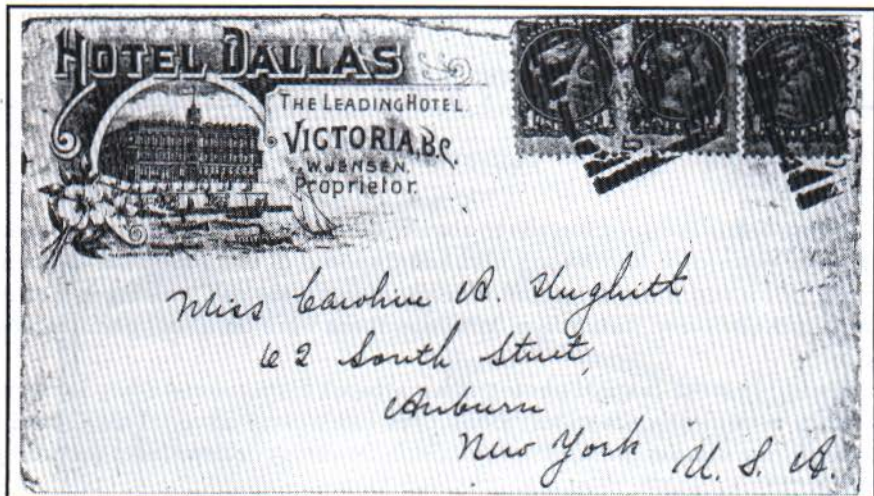 HOTEL DALLAS
THE LEADING HOTEL
VICTORIA, B.C.
W. JENSEN.
Proprietor.
Miss Caroline A. Hughitt
62 South Street,
Auburn
New York U. S. A.